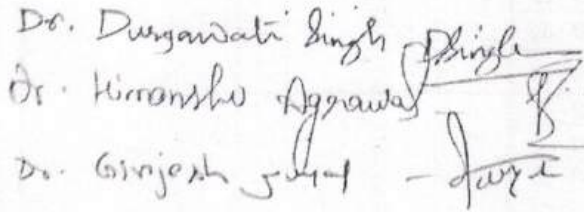 Dr. Durgawati Singh DSingh
Dr. Himanshu Agrawal -
Dr. Girijesh